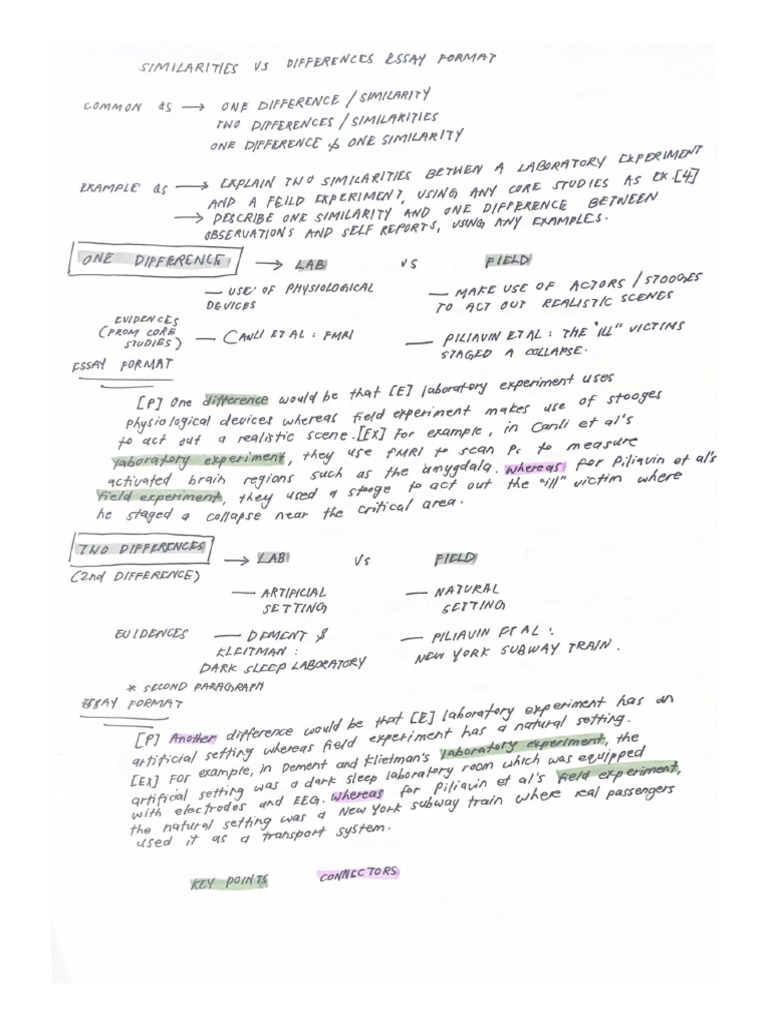 SIMILARITIES VS DIFFERENCES ESSAY FORMAT
COMMON Qs → ONE DIFFERENCE / SIMILARITY
TWO DIFFERENCES / SIMILARITIES
ONE DIFFERENCE & ONE SIMILARITY
EXAMPLE Qs → EXPLAIN TWO SIMILARITIES BETWEEN A LABORATORY EXPERIMENT
AND A FEILD EXPERIMENT, USING ANY CORE STUDIES AS EX.[4]
→ DESCRIBE ONE SIMILARITY AND ONE DIFFERENCE BETWEEN
OBSERVATIONS AND SELF REPORTS, USING ANY EXAMPLES.
ONE DIFFERENCE → LAB VS FIELD
— USE OF PHYSIOLOGICAL — MAKE USE OF ACTORS / STOOGES
DEVICES TO ACT OUT REALISTIC SCENES
EVIDENCES
(FROM CORE — CANLI ET AL : FMRI — PILIAVIN ET AL : THE "ILL" VICTIMS
STUDIES) STAGED A COLLAPSE.
ESSAY FORMAT
[P] One difference would be that [E] laboratory experiment uses
physiological devices whereas field experiment makes use of stooges
to act out a realistic scene. [EX] For example, in Canli et al's
laboratory experiment, they use fMRI to scan Ps to measure
activated brain regions such as the amygdala. whereas for Piliavin et al's
field experiment, they used a stooge to act out the "ill" victim where
he staged a collapse near the critical area.
TWO DIFFERENCES → LAB Vs FIELD
(2nd DIFFERENCE)
— ARTIFICIAL — NATURAL
SETTING SETTING
EVIDENCES — DEMENT & — PILIAVIN ET AL :
KLEITMAN : NEW YORK SUBWAY TRAIN.
DARK SLEEP LABORATORY
* SECOND PARAGRAPH
ESSAY FORMAT
[P] Another difference would be that [E] laboratory experiment has an
artificial setting whereas field experiment has a natural setting.
[EX] For example, in Dement and Klietman's laboratory experiment, the
artificial setting was a dark sleep laboratory room which was equipped
with electrodes and EEG. whereas for Piliavin et al's field experiment,
the natural setting was a New York subway train where real passengers
used it as a transport system.
KEY POINTS CONNECTORS